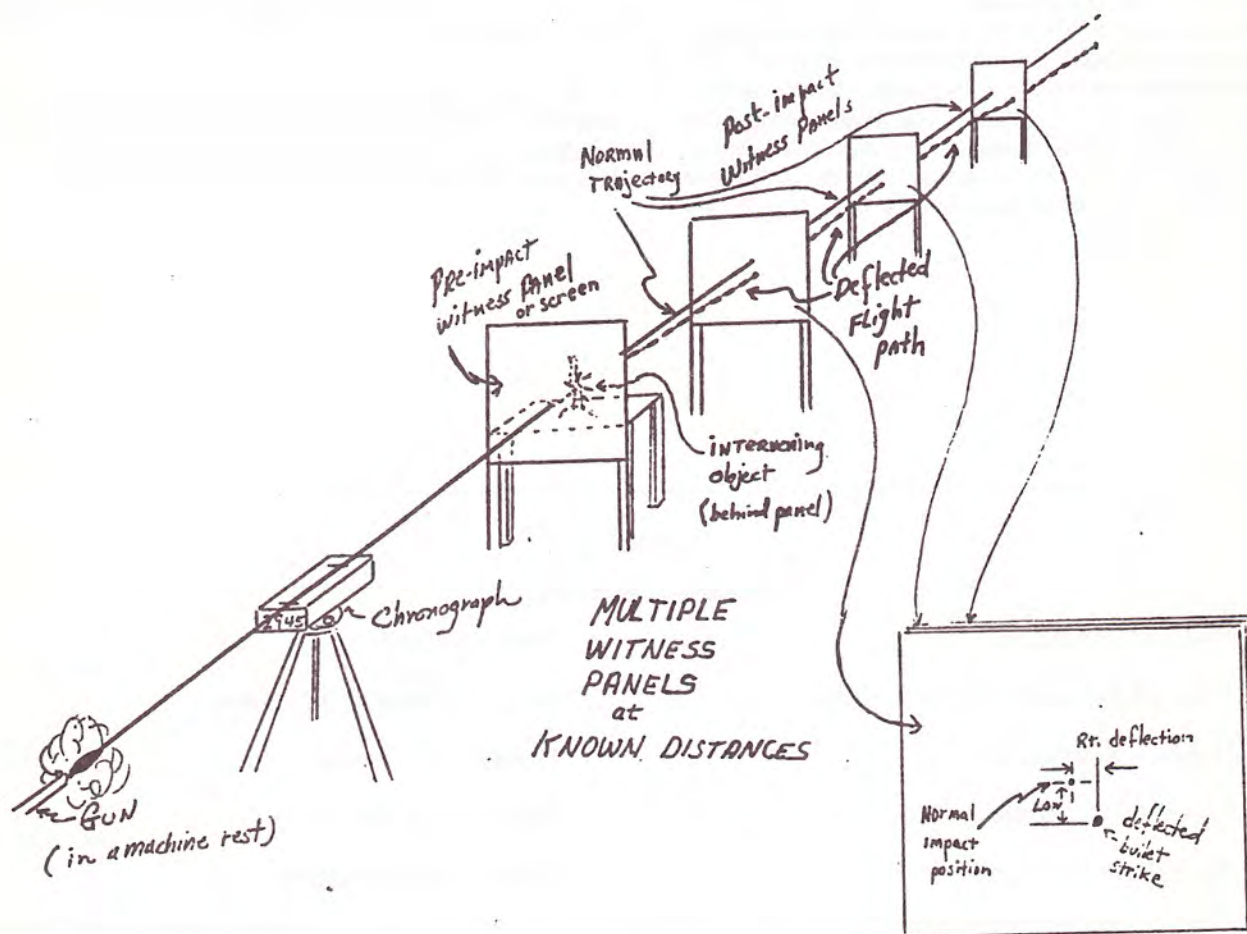 Post-impact
Witness Panels
Normal
Trajectory
Pre-impact
witness Panel
or screen
Deflected
Flight
path
intervening
Object
(behind panel)
Chronograph
MULTIPLE
WITNESS
PANELS
at
KNOWN DISTANCES
Gun
(in a machine rest)
Rt. deflection
Low
Normal
impact
position
deflected
bullet
strike